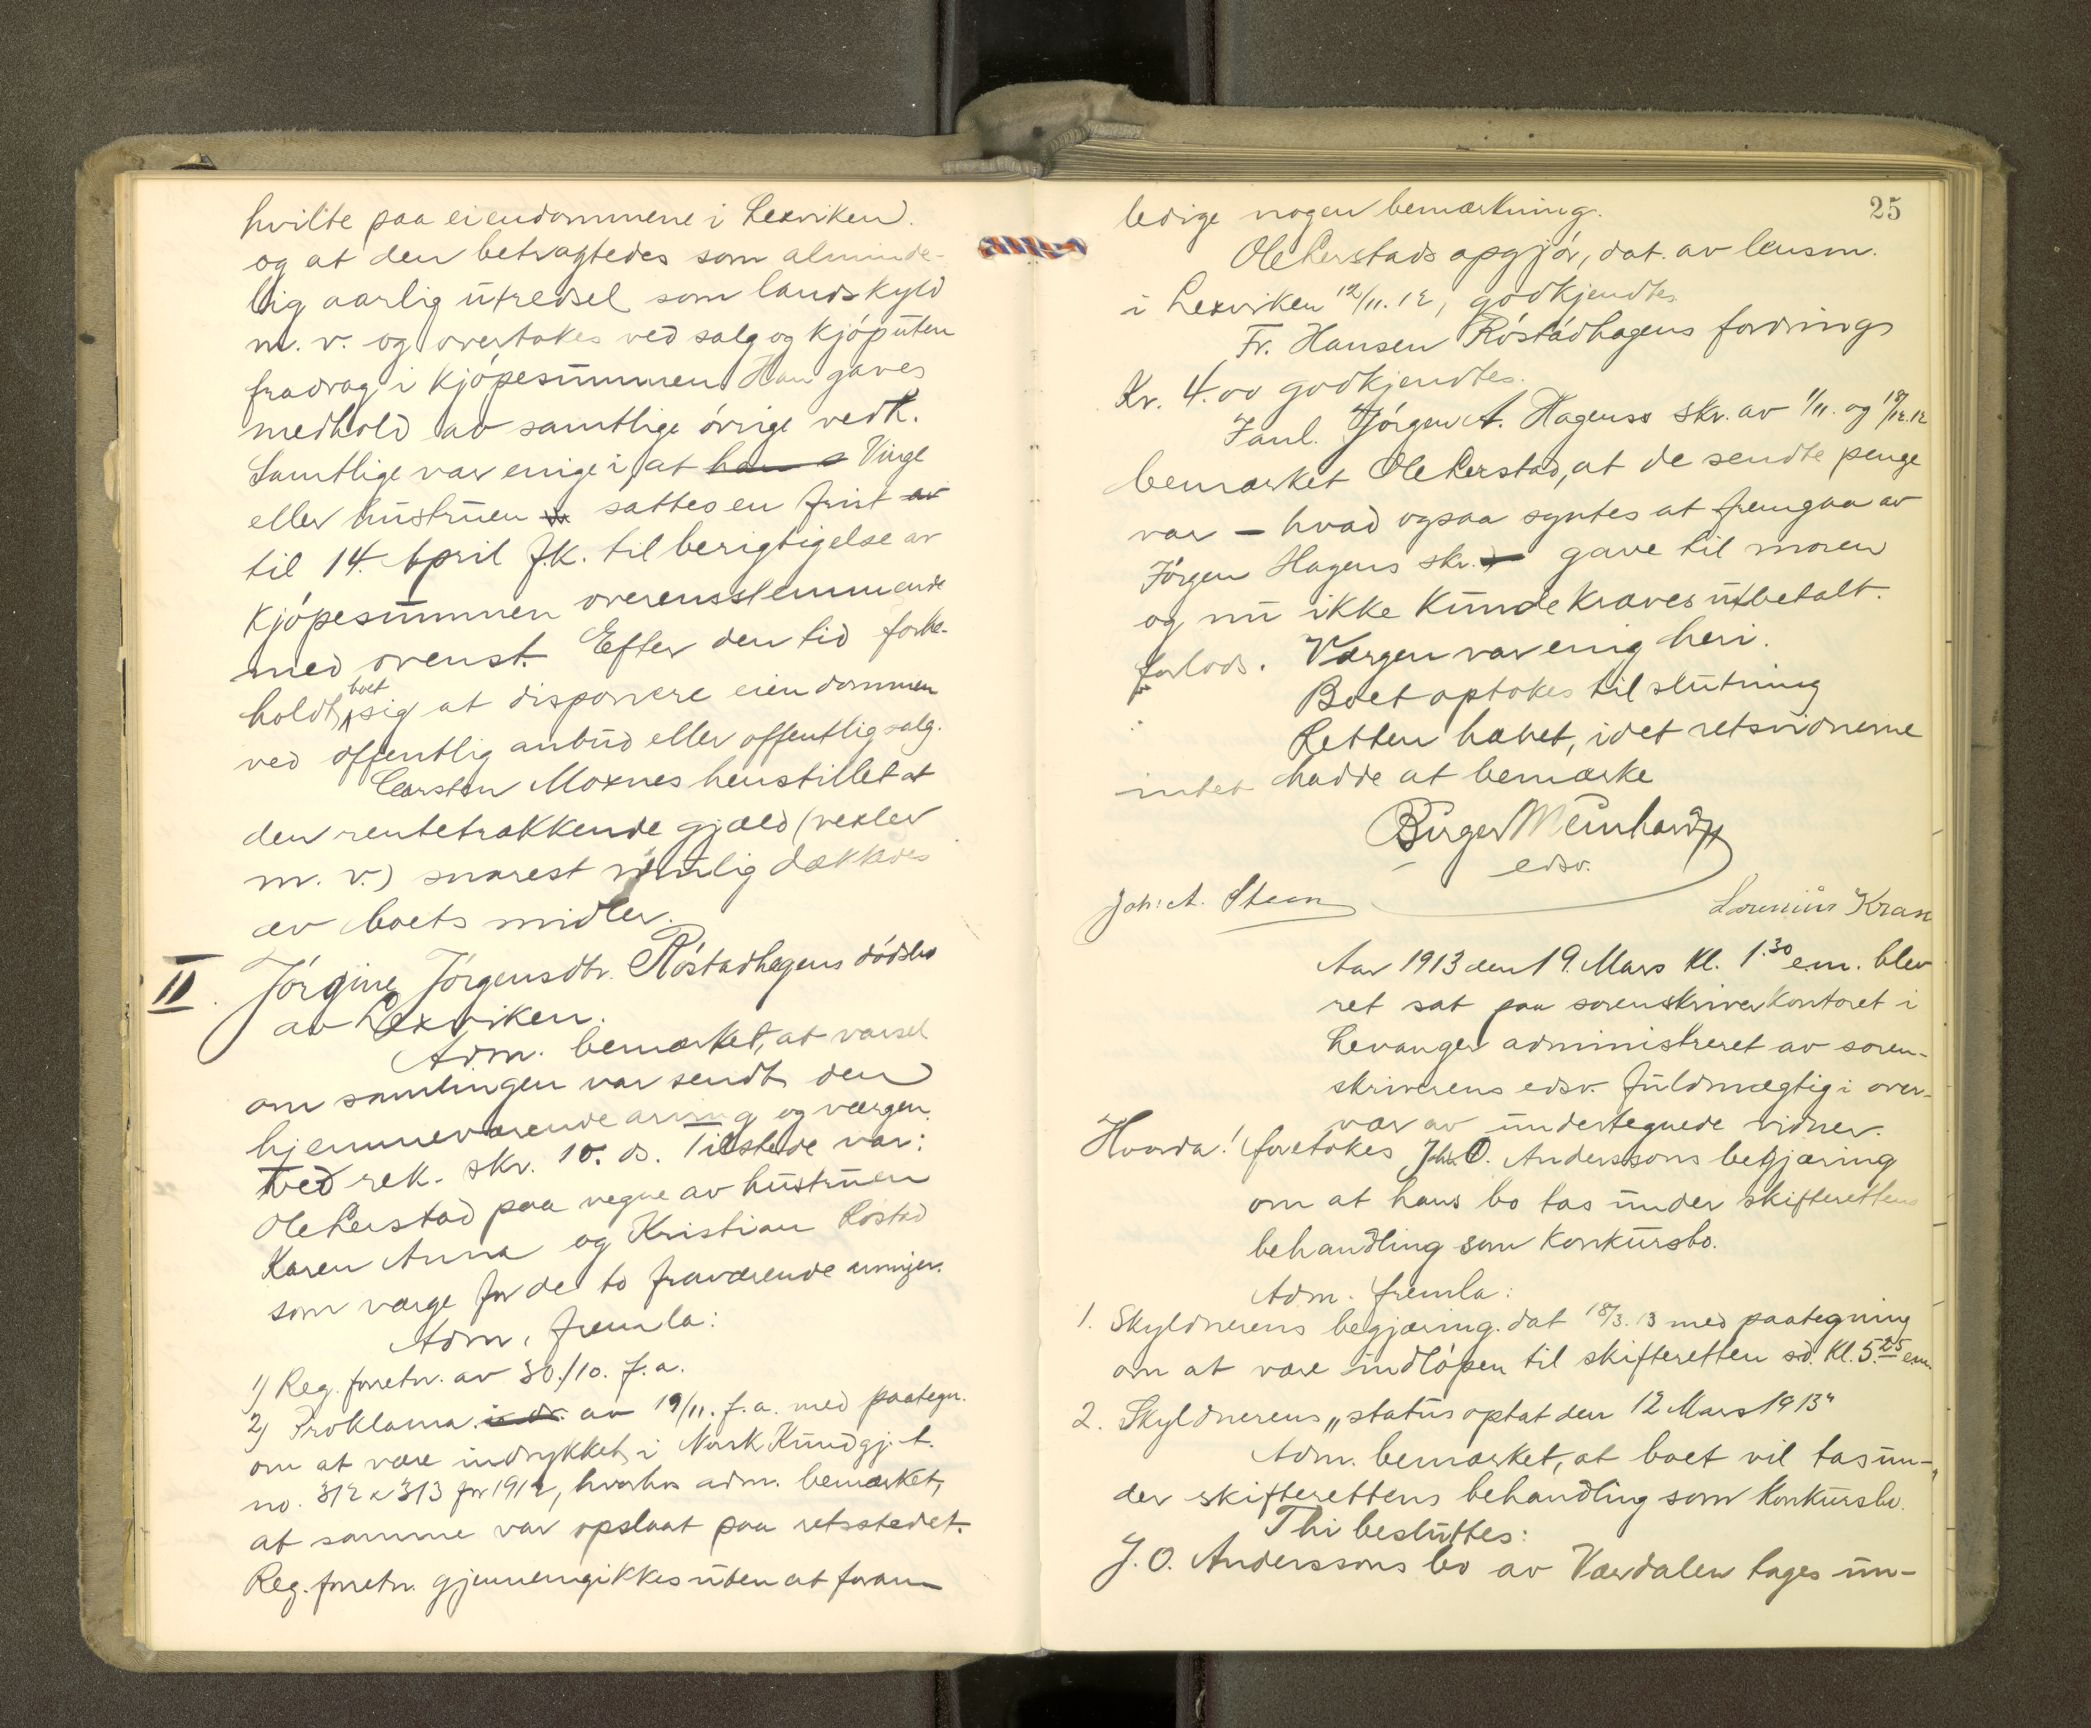 hvilte paa eiendommene i Lexviken.
og at den betragtedes som alminde-
lig aarlig utredsel som landskyld
m. v. og overtokes ved salg og kjøp uten
fradrag i kjøpesummen Han gaves
medhold av samtlige øvrige vedk.
Samtlige var enige i, at Vinge
eller hustruen sattes en frist av
til 14. April f.k. til berigtigelse av
kjøpesummen overensstemmende
med ovenst. Efter den tid forbe-
holdt boet sig at disponere eiendommen
ved offentlig anbud eller offentlig salg.
Carsten Moxnes henstillet at
den rentetrækkende gjæld (vexler
m. v.) snarest mulig dækkedes
av boets midler.
II. Jørgine Jørgensdtr. Røstadhagens dødsbo
av Lexviken.
Adm. bemærket, at varsel
om samlingen var sendt den
hjemmeværende arving og værgen
ved rek. skr. 10. ds. Tilstede var:
Ole Lerstad paa vegne av hustruen
Karen Anna og Kristian Rostad
som værge for de to fraværende arvinger.
Adm. fremla:
1) Reg. forretn. av 30/10. f.a.
2) Proklama av 19/11. f.a. med paategn.
om at være indrykket i Norsk Kundgj. t.
no. 312 & 313 for 1912, hvorhos adm. bemærket,
at samme var opslaat paa retsstedet.
Reg. forretn. gjennemgikkes uten at foran-
25
ledige nogen bemærkning.
Ole Lerstads opgjør, dat. av lensm.
i Lexviken 12/11. 12, godkjendtes.
Fr. Hansen Røstadhagens fordrings
Kr. 4.00 godkjendtes.
Jørgen A. Hagens skr. av 1/11. og 18/12.12
bemærket Ole Lerstad, at de sendte penge
var – hvad ogsaa syntes at fremgaa av
Jørgen Hagens skr. – gave til moren
og nu ikke kunde kræves utbetalt.
forlods. Værgen var enig heri.
Boet optokes til slutning
Retten hævet, idet retsvidnerne
intet hadde at bemærke
Birger Meinhardt
edsv.
Joh: A. Steen
Lorenius Kran
Aar 1913 den 19. Mars Kl. 1.30 em. blev
ret sat paa sorenskriverkontoret i
Levanger administreret av soren-
skriverens edsv. fuldmægtig i over-
vær av undertegnede vidner.
Hvorda! foretokes Joh. O. Anderssons begjæring
om at hans bo tas under skifterettens
behandling som konkursbo.
Adm. fremla:
1. Skyldnerens begjæring. dat 18/3. 13 med paategning
om at være indløpen til skifteretten sd. Kl. 5.25 em.
2. Skyldnerens „status optat den 12 Mars 1913“
Adm. bemærket, at boet vil tas un-
der skifterettens behandling som konkursbo.
Thi besluttes:
J. O. Anderssons bo av Værdalen tages un-